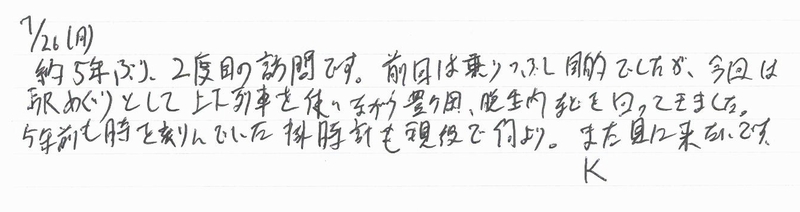 7/26(月)
約5年ぶり、2度目の訪問です。前回は乗りつぶし目的でしたが、今回は
駅めぐりとして上下列車を使いながら豊ヶ岡、晩生内などを回ってきました。
5年前も時を刻んでいた掛時計も現役で何より。また見に来たいです。
K